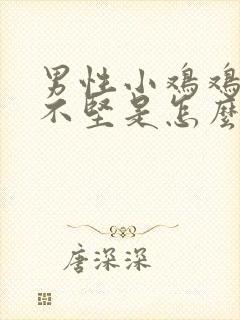 男性小鸡鸡
不坚是怎麽
唐深深